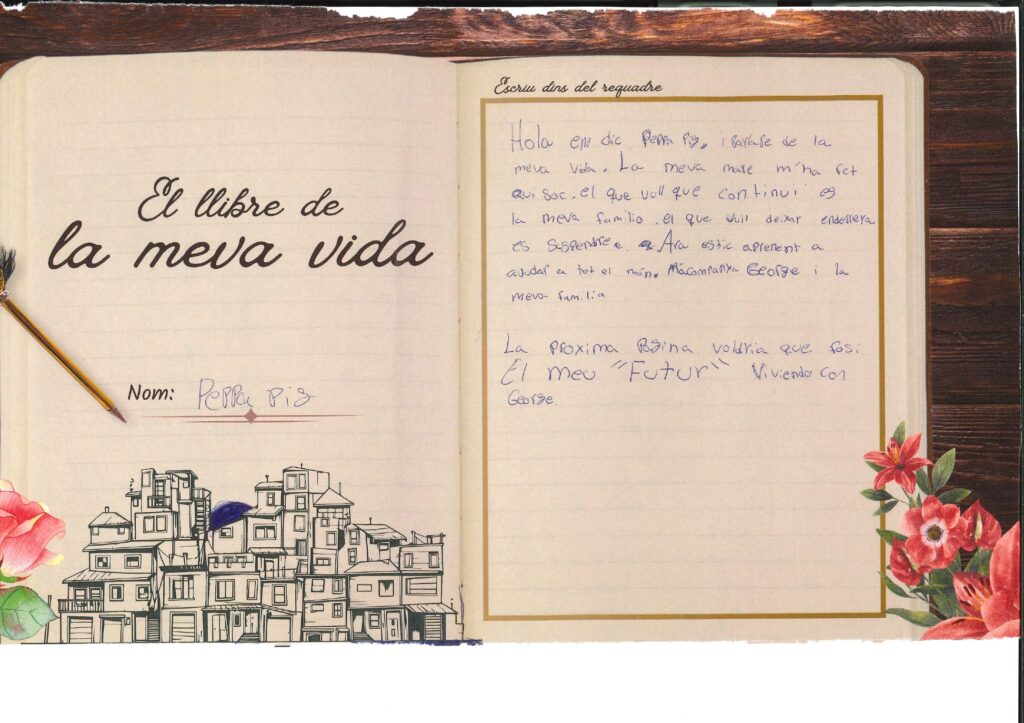 El llibre de
la meva vida
Nom: Peppa pig
Escriu dins del requadre
Hola em dic Peppa Pig. i parlare de la
meva vida. La meva mare m'ha fet
qui soc. el que vull que continui es
la meva familia. el que vull deixar enderrera
es suspendre. Ara estic aprenent a
ajudar a tot el món. M'acompanya George i la
meva familia
La proxima Pagina voldria que fos:
El meu "Futur" Viviendo con
George.